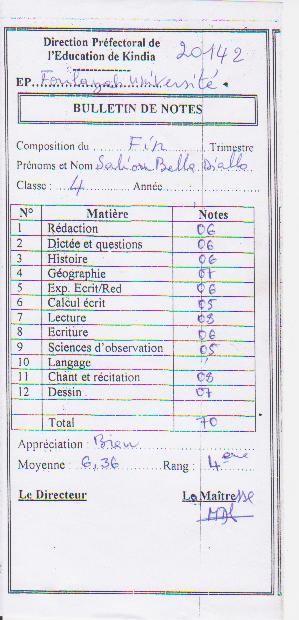 Direction Préfectoral de
l'Education de Kindia
20142
EP. Foulayah université.
BULLETIN DE NOTES
Composition du Fin Trimestre
Prénoms et Nom Saliou Bella Diallo
Classe : 4 Année
N° Matière Notes
1 Rédaction 06
2 Dictée et questions 06
3 Histoire 06
4 Géographie 07
5 Exp. Ecrit/Red 06
6 Calcul écrit 05
7 Lecture 08
8 Ecriture 06
9 Sciences d'observation 05
10 Langage "
11 Chant et récitation 08
12 Dessin 07
Total 70
Appréciation : Bien
Moyenne : 6,36 Rang : 4ere
Le Directeur Le Maîtresse